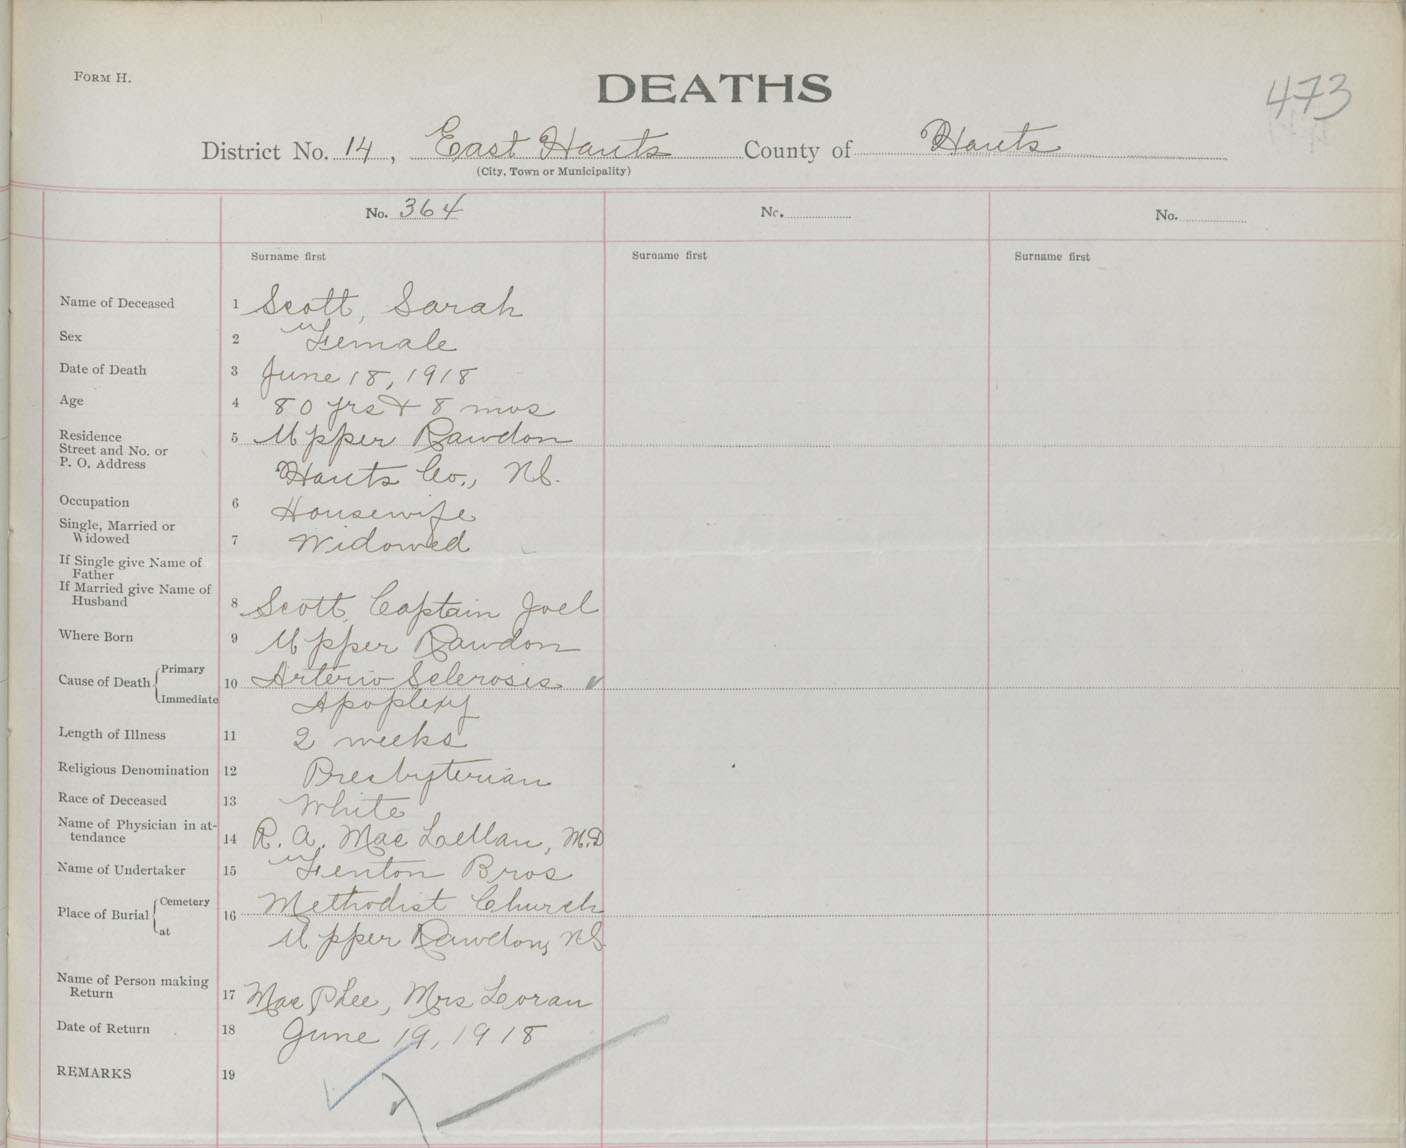 FORM H.
DEATHS
473
District No. 14, East Hants County of Hants
(City, Town or Municipality)
No. 364 No. No.
Surname first Surname first Surname first
Name of Deceased 1 Scott, Sarah
Sex 2 Female
Date of Death 3 June 18, 1918
Age 4 80 yrs & 8 mos
Residence 5 Upper Rawdon
Street and No. or
P. O. Address Hants Co., NS.
Occupation 6 Housewife
Single, Married or
Widowed 7 Widowed
If Single give Name of
Father
If Married give Name of
Husband 8 Scott, Captain Joel
Where Born 9 Upper Rawdon
Cause of Death Primary 10 Arterio Sclerosis
Immediate Apoplexy
Length of Illness 11 2 weeks
Religious Denomination 12 Presbyterian
Race of Deceased 13 White
Name of Physician in at-
tendance 14 R. A. MacLellan, M.D
Name of Undertaker 15 Fenton Bros
Place of Burial Cemetery 16 Methodist Church
at Upper Rawdon, NS
Name of Person making
Return 17 MacPhee, Mrs Loran
Date of Return 18 June 19, 1918
REMARKS 19